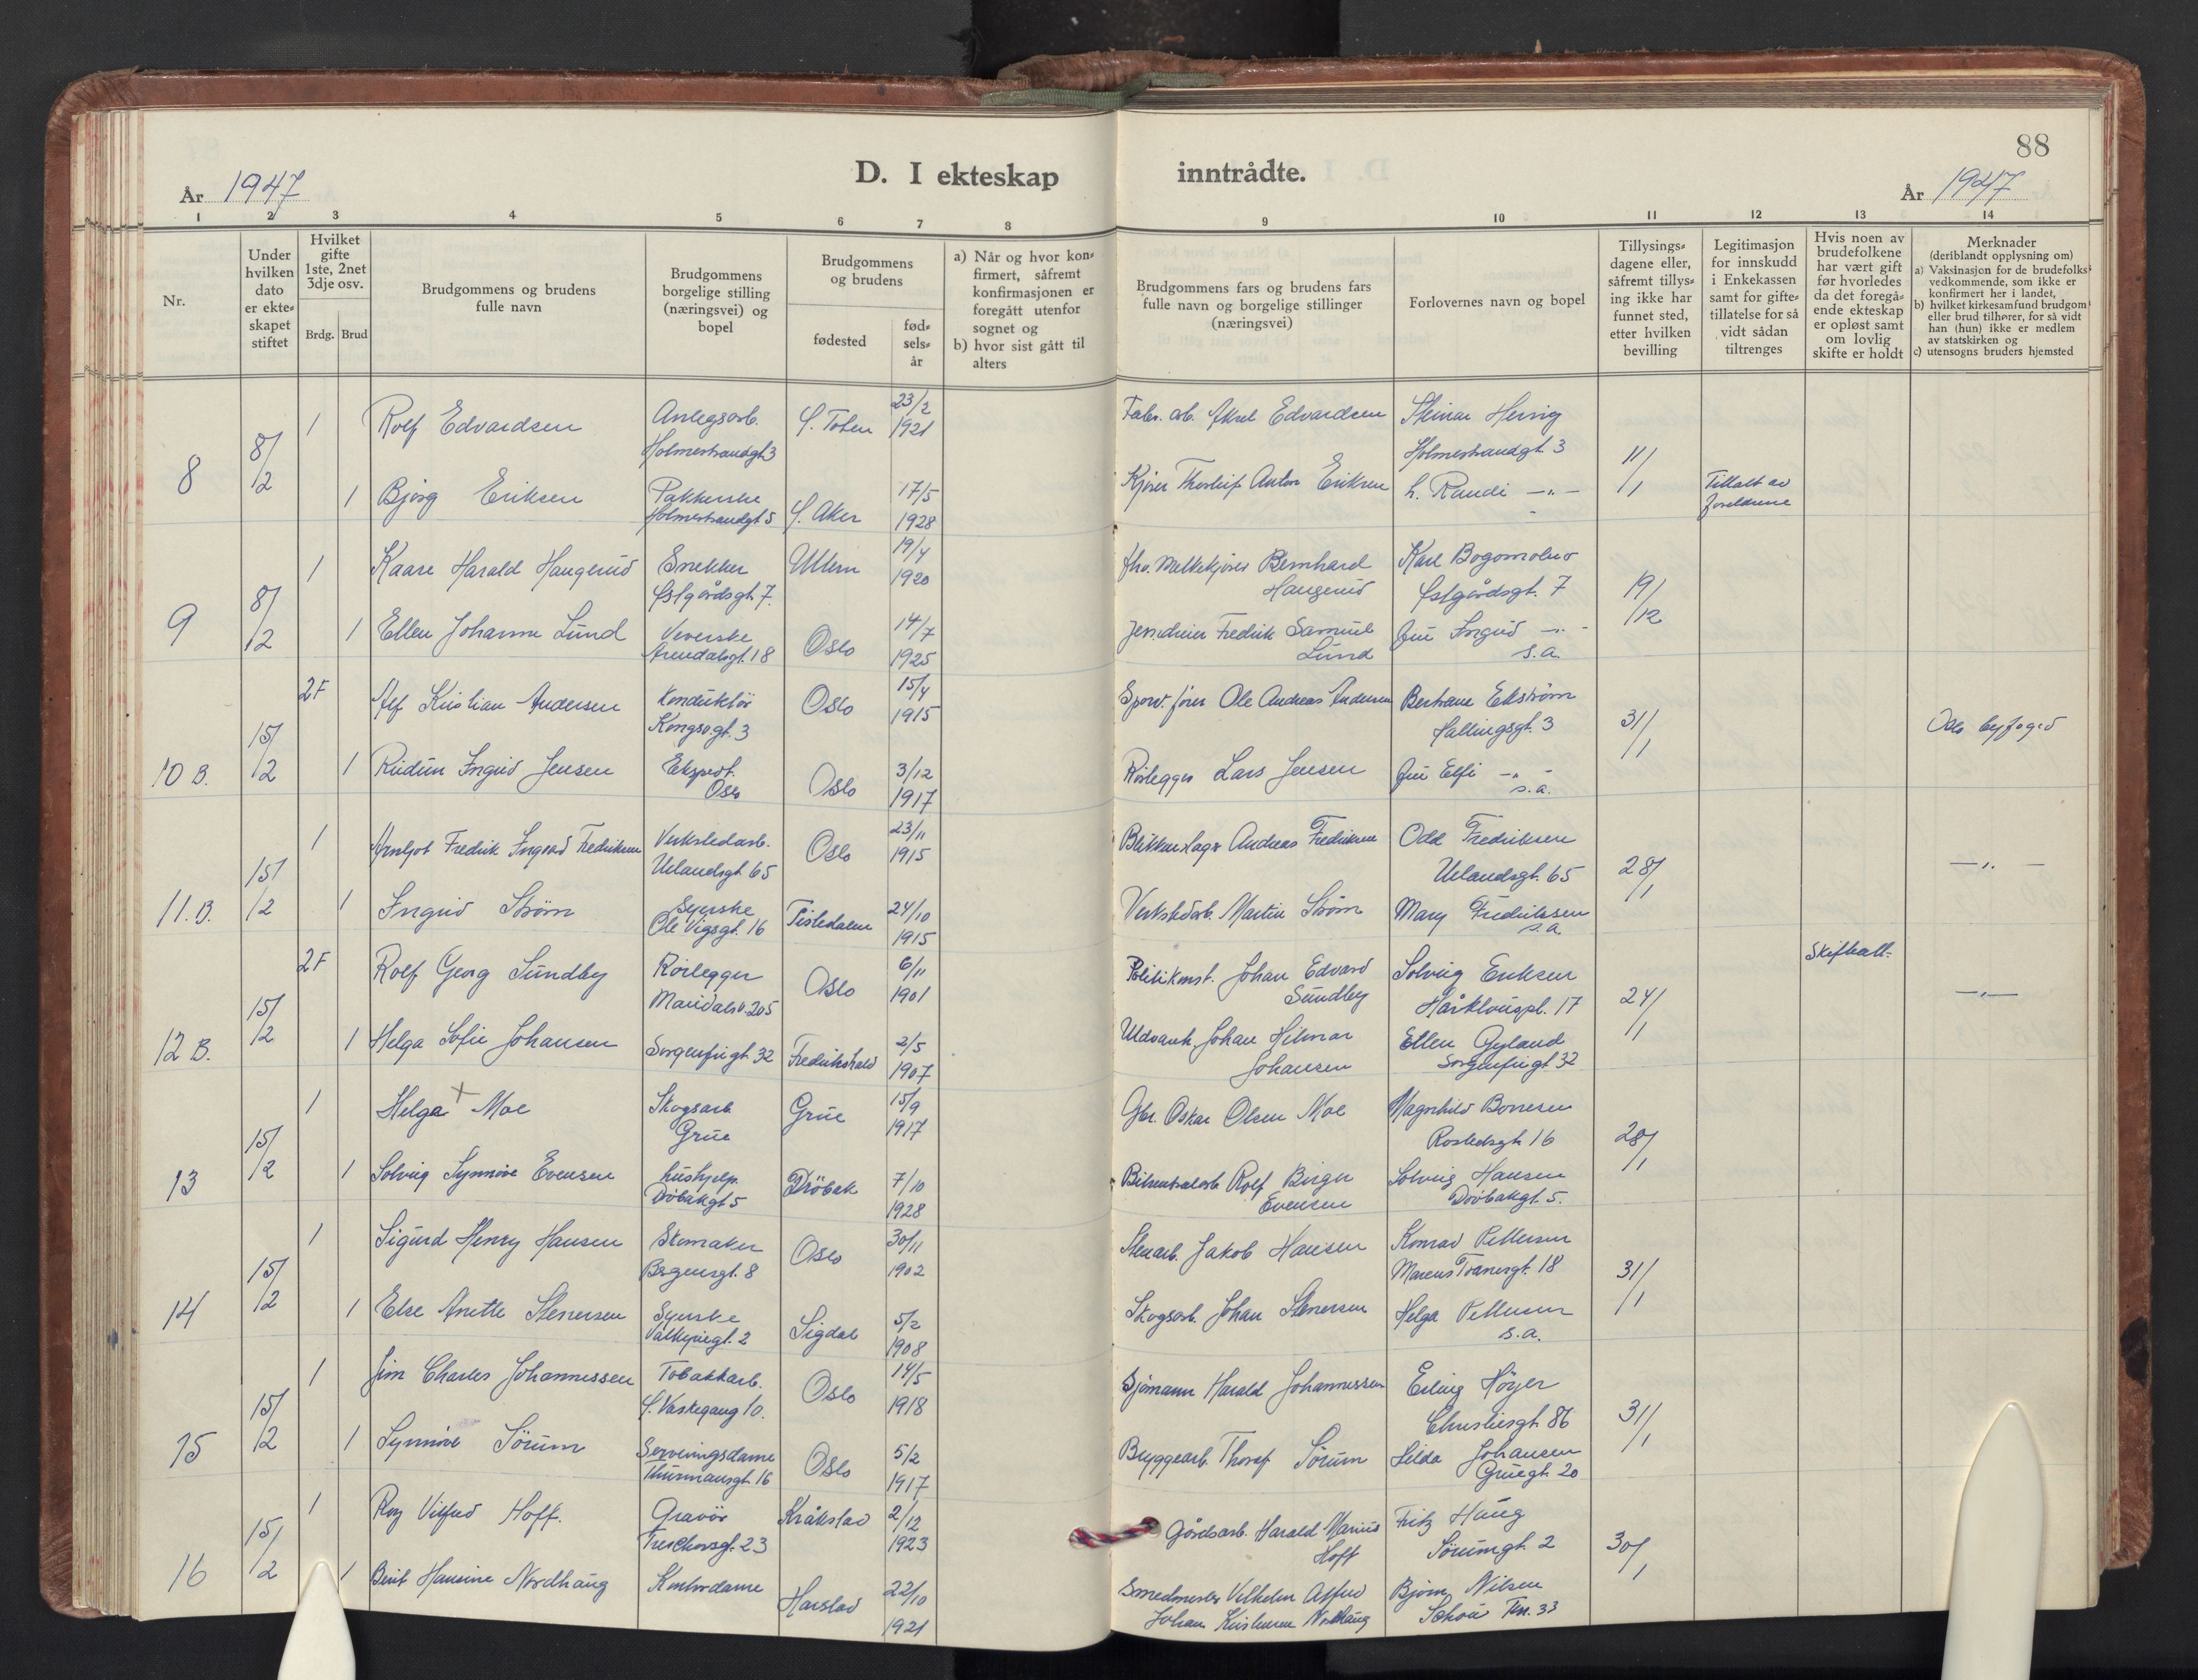 88
D. I ekteskap inntrådte.
År 1947
År 1947
1 2 3 4 5 6 7 8 9 10 11 12 13 14
Nr.
Under hvilken dato er ekte-skapet stiftet
Hvilket gifte 1ste, 2net 3dje osv.
Brdg. Brud
Brudgommens og brudens fulle navn
Brudgommens borgelige stilling (næringsvei) og bopel
Brudgommens og brudens
fødested
fød-sels-år
a) Når og hvor kon-firmert, såfremt konfirmasjonen er foregått utenfor sognet og
b) hvor sist gått til alters
Brudgommens fars og brudens fars fulle navn og borgelige stillinger (næringsvei)
Forlovernes navn og bopel
Tillysings-dagene eller, såfremt tillys-ing ikke har funnet sted, etter hvilken bevilling
Legitimasjon for innskudd i Enkekassen samt for gifte-tillatelse for så vidt sådan tiltrenges
Hvis noen av brudefolkene har vært gift før hvorledes da det foregå-ende ekteskap er opløst samt om lovlig skifte er holdt
Merknader
(deriblandt opplysning om)
a) Vaksinasjon for de brudefolks vedkommende, som ikke er konfirmert her i landet,
b) hvilket kirkesamfund brudgom eller brud tilhører, for så vidt han (hun) ikke er medlem av statskirken og
c) utensogns bruders hjemsted
8 8/2 1 Rolf Edvardsen Anlegsarb. Holmestrandgt 3 Ø. Toten 23/2 1921 Fabr. arb. Aksel Edvardsen Steinar Hervig Holmestrandgt. 3 11/1
1 Bjørg Eriksen Pakkerske Holmestrandgt 5 Ø. Aker 17/5 1928 Kjører Thorleif Anton Eriksen h. Randi —"— Tillatt av foreldrene
9 8/2 1 Kaare Harald Haugerud Snekker Østgårdsgt 7. Ullern 19/4 1920 fhv. Melkekjører Bernhard Haugerud Karl Bogomolno Østgårdsgt. 7 19/12
1 Ellen Johanne Lund Veverske Arendalsgt. 18 Oslo 14/7 1925 Jerndreier Fredrik Samuel Lund fru Ingrid —"— s.a.
10 B. 15/2 2F Alf Kristian Andersen Konduktør Kongsv.gt. 3 Oslo 15/4 1915 Sporv. fører Ole Andreas Andersen Bertrane Ekstrøm Hallingsgt. 3 31/1 Oslo byfoged
1 Rudun Ingrid Jensen Ekspedt. Oslo Oslo 3/12 1917 Rørlegger Lars Jensen fru Elfi —"— s.a.
11. B. 15/2 1 Arnljot Fredrik Ingvard Fredriksen Verkstedarb. Uelandsgt 65 Oslo 23/11 1915 Blikkenslager Andreas Fredriksen Odd Fredriksen Uelandsgt. 65 28/1 —"—
1 Ingrid Strøm Syerske Ole Vigsgt. 16 Tistedalen 24/10 1915 Verkstedarb. Martin Strøm Mary Fredriksen s.a.
12 B. 15/2 2F Rolf Georg Sundby Rørlegger Maridalsv. 205 Oslo 6/11 1901 Politikonst. Johan Edvard Sundby Solveig Eriksen Hårkloupl. 17 24/1 Skifteatt. —"—
1 Helga Sofie Johansen Sorgenfrigt 32 Fredrikshald 2/5 1907 Johan Hilmar Johansen Ellen Gyland Sorgenfrigt 32
13 15/2 1 Helge + Moe Skogsarb. Grue Grue 15/9 1917 Gbr. Oskar Olsen Moe Magnhild Borresen Rostedsgt. 16 28/1
1 Solveig Synnøve Evensen hushjelp. Drøbakgt 5 Drøbak 7/10 1928 Bilsentralarb. Rolf Birger Evensen Solveig Hansen Drøbakgt. 5.
14 15/2 1 Sigurd Henry Hansen Skomaker Bergensgt. 8 Oslo 30/11 1902 Stenarb. Jakob Hansen Konrad Pettersen Marcus Tranesgt. 18 31/1
1 Else Anette Stenersen Syerske Valkyriegt. 2 Sigdal 5/2 1908 Skogsarb. Johan Stenersen Helga Pettersen s.a.
15 15/2 1 Jim Charles Johannessen Tobakkarb. Ø. Vaskegang 10. Oslo 14/5 1918 Sjømann Harald Johannessen Erling Høyer Christiesgt. 86 31/1
1 Synnøve Sørum Serveringsdame Thurmannsgt. 16 Oslo 5/2 1917 Bryggearb. Thoralf Sørum Hilda Johansen Gruegt. 20
16 15/2 1 Roy Vilfred Hoff. Gravør Treschowsgt. 23 Kråkstad 2/12 1923 Gårdsarb. Harald Marius Hoff Fritz Haug Sørumgt. 2 30/1
1 Berit Hansine Nordhaug Kontordame Harstad 22/10 1921 Smedmester Vilhelm Alfred Johan Kristensen Nordhaug Bjørn Nilsen Schous Terr. 33